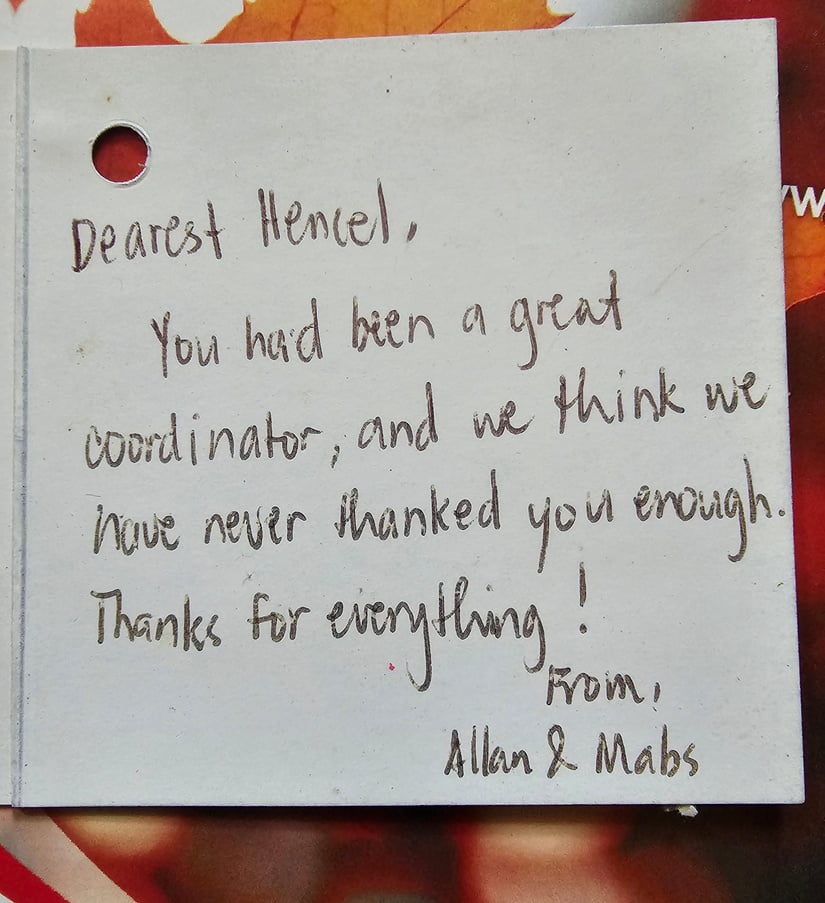 Dearest Hencel,
You had been a great
coordinator, and we think we
have never thanked you enough.
Thanks for everything!
From,
Allan & Mabs